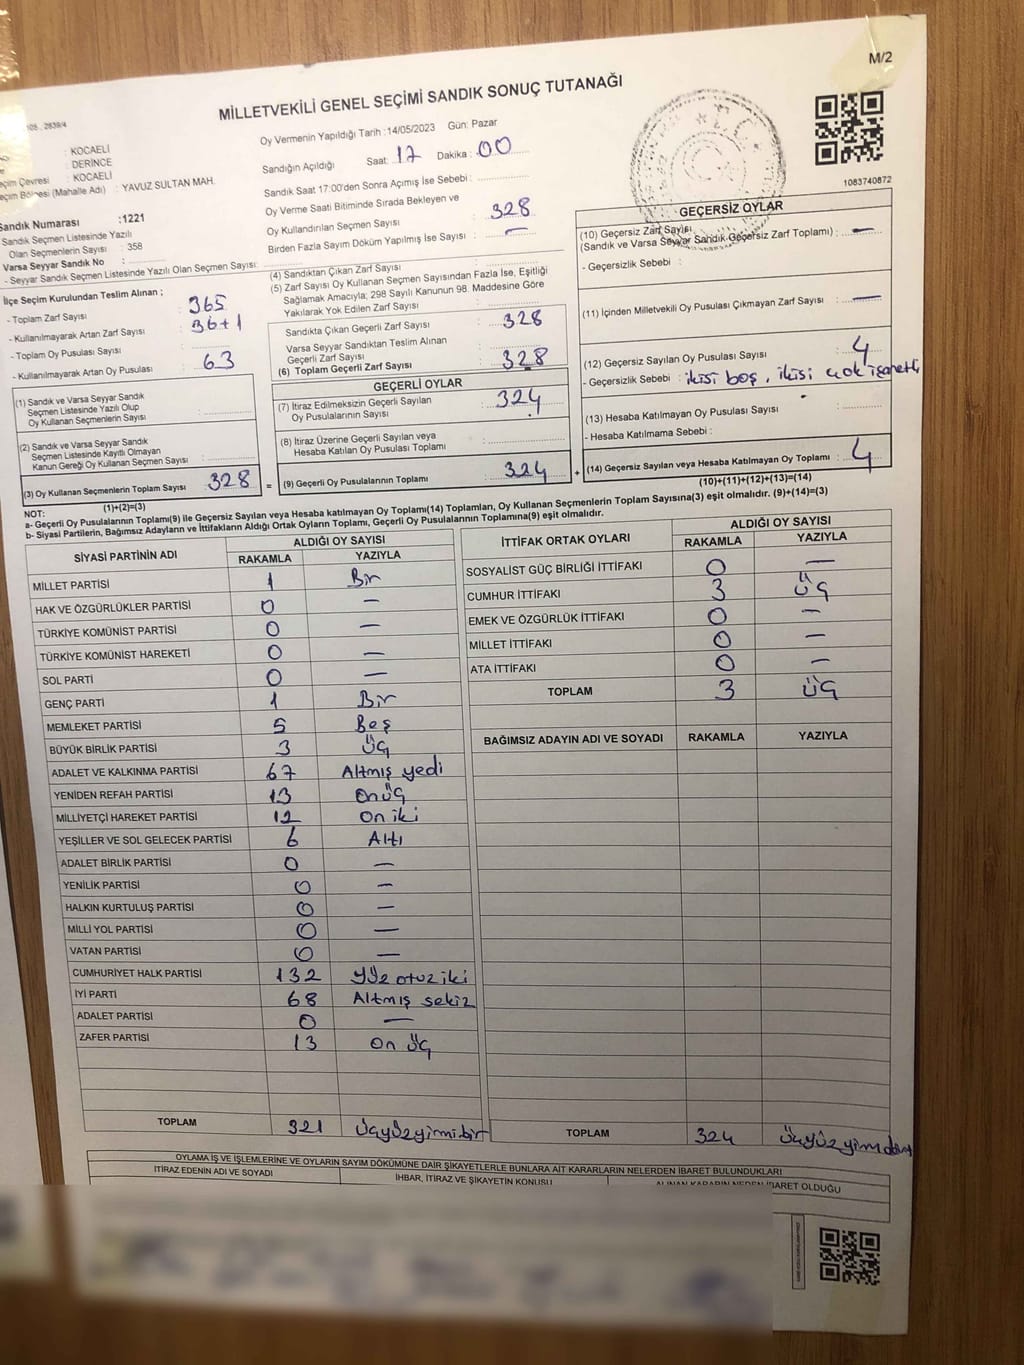 M/2
MİLLETVEKİLİ GENEL SEÇİMİ SANDIK SONUÇ TUTANAĞI
: KOCAELİ
: DERİNCE
: KOCAELİ
(Mahalle Adı) : YAVUZ SULTAN MAH.
Sandık Numarası :1221
Sandık Seçmen Listesinde Yazılı
Olan Seçmenlerin Sayısı : 358
Varsa Seyyar Sandık No :
- Seyyar Sandık Seçmen Listesinde Yazılı Olan Seçmen Sayısı:
Oy Vermenin Yapıldığı Tarih :14/05/2023 Gün: Pazar
Sandığın Açıldığı Saat: 17 Dakika : 00
Sandık Saat 17:00'den Sonra Açmış İse Sebebi :
Oy Verme Saati Bitiminde Sırada Bekleyen ve
Oy Kullandırılan Seçmen Sayısı : 328
Birden Fazla Sayım Döküm Yapılmış İse Sayısı : —
1083740872
İlçe Seçim Kurulundan Teslim Alınan ;
- Toplam Zarf Sayısı : 365
- Kullanılmayarak Artan Zarf Sayısı : 36+1
- Toplam Oy Pusulası Sayısı :
- Kullanılmayarak Artan Oy Pusulası : 63
(1) Sandık ve Varsa Seyyar Sandık
Seçmen Listesinde Yazılı Olup
Oy Kullanan Seçmenlerin Sayısı :
(2) Sandık ve Varsa Seyyar Sandık
Seçmen Listesinde Kayıtlı Olmayan
Kanun Gereği Oy Kullanan Seçmen Sayısı :
(3) Oy Kullanan Seçmenlerin Toplam Sayısı 328 =
(1)+(2)=(3)
(4) Sandıktan Çıkan Zarf Sayısı :
(5) Zarf Sayısı Oy Kullanan Seçmen Sayısından Fazla İse, Eşitliği
Sağlamak Amacıyla; 298 Sayılı Kanunun 98. Maddesine Göre
Yakılarak Yok Edilen Zarf Sayısı :
Sandıkta Çıkan Geçerli Zarf Sayısı : 328
Varsa Seyyar Sandıktan Teslim Alınan
Geçerli Zarf Sayısı :
(6) Toplam Geçerli Zarf Sayısı : 328
GEÇERLİ OYLAR
(7) İtiraz Edilmeksizin Geçerli Sayılan
Oy Pusulalarının Sayısı : 324
(8) İtiraz Üzerine Geçerli Sayılan veya
Hesaba Katılan Oy Pusulası Toplamı :
(9) Geçerli Oy Pusulalarının Toplamı : 324 +
GEÇERSİZ OYLAR
(10) Geçersiz Zarf Sayısı
(Sandık ve Varsa Seyyar Sandık Geçersiz Zarf Toplamı) : —
- Geçersizlik Sebebi :
(11) İçinden Milletvekili Oy Pusulası Çıkmayan Zarf Sayısı : —
(12) Geçersiz Sayılan Oy Pusulası Sayısı : 4
- Geçersizlik Sebebi : ikisi boş, ikisi çok işaretli
(13) Hesaba Katılmayan Oy Pusulası Sayısı :
- Hesaba Katılmama Sebebi :
(14) Geçersiz Sayılan veya Hesaba Katılmayan Oy Toplamı : 4
(10)+(11)+(12)+(13)=(14)
NOT:
a- Geçerli Oy Pusulalarının Toplamı(9) ile Geçersiz Sayılan veya Hesaba katılmayan Oy Toplamı(14) Toplamları, Oy Kullanan Seçmenlerin Toplam Sayısına(3) eşit olmalıdır. (9)+(14)=(3)
b- Siyasi Partilerin, Bağımsız Adayların ve İttifakların Aldığı Ortak Oyların Toplamı, Geçerli Oy Pusulalarının Toplamına(9) eşit olmalıdır.
SİYASİ PARTİNİN ADI ALDIĞI OY SAYISI
RAKAMLA YAZIYLA
MİLLET PARTİSİ 1 Bir
HAK VE ÖZGÜRLÜKLER PARTİSİ 0 —
TÜRKİYE KOMÜNİST PARTİSİ 0 —
TÜRKİYE KOMÜNİST HAREKETİ 0 —
SOL PARTİ 0 —
GENÇ PARTİ 1 Bir
MEMLEKET PARTİSİ 5 Beş
BÜYÜK BİRLİK PARTİSİ 3 ÜÇ
ADALET VE KALKINMA PARTİSİ 67 Altmış yedi
YENİDEN REFAH PARTİSİ 13 Onüç
MİLLİYETÇİ HAREKET PARTİSİ 12 On iki
YEŞİLLER VE SOL GELECEK PARTİSİ 6 Altı
ADALET BİRLİK PARTİSİ 0 —
YENİLİK PARTİSİ 0 —
HALKIN KURTULUŞ PARTİSİ 0 —
MİLLİ YOL PARTİSİ 0 —
VATAN PARTİSİ 0 —
CUMHURİYET HALK PARTİSİ 132 Yüz otuz iki
İYİ PARTİ 68 Altmış sekiz
ADALET PARTİSİ 0 —
ZAFER PARTİSİ 13 On üç
TOPLAM 321 Üçyüzyirmibir
İTTİFAK ORTAK OYLARI ALDIĞI OY SAYISI
RAKAMLA YAZIYLA
SOSYALİST GÜÇ BİRLİĞİ İTTİFAKI 0 —
CUMHUR İTTİFAKI 3 ÜÇ
EMEK VE ÖZGÜRLÜK İTTİFAKI 0 —
MİLLET İTTİFAKI 0 —
ATA İTTİFAKI 0 —
TOPLAM 3 ÜÇ
BAĞIMSIZ ADAYIN ADI VE SOYADI RAKAMLA YAZIYLA
TOPLAM 324 Üçyüzyirmidört
OYLAMA İŞ VE İŞLEMLERİNE VE OYLARIN SAYIM DÖKÜMÜNE DAİR ŞİKAYETLERLE BUNLARA AİT KARARLARIN NELERDEN İBARET BULUNDUKLARI
İTİRAZ EDENİN ADI VE SOYADI
İHBAR, İTİRAZ VE ŞİKAYETİN KONUSU
ALINAN KARARIN NEDEN İBARET OLDUĞU